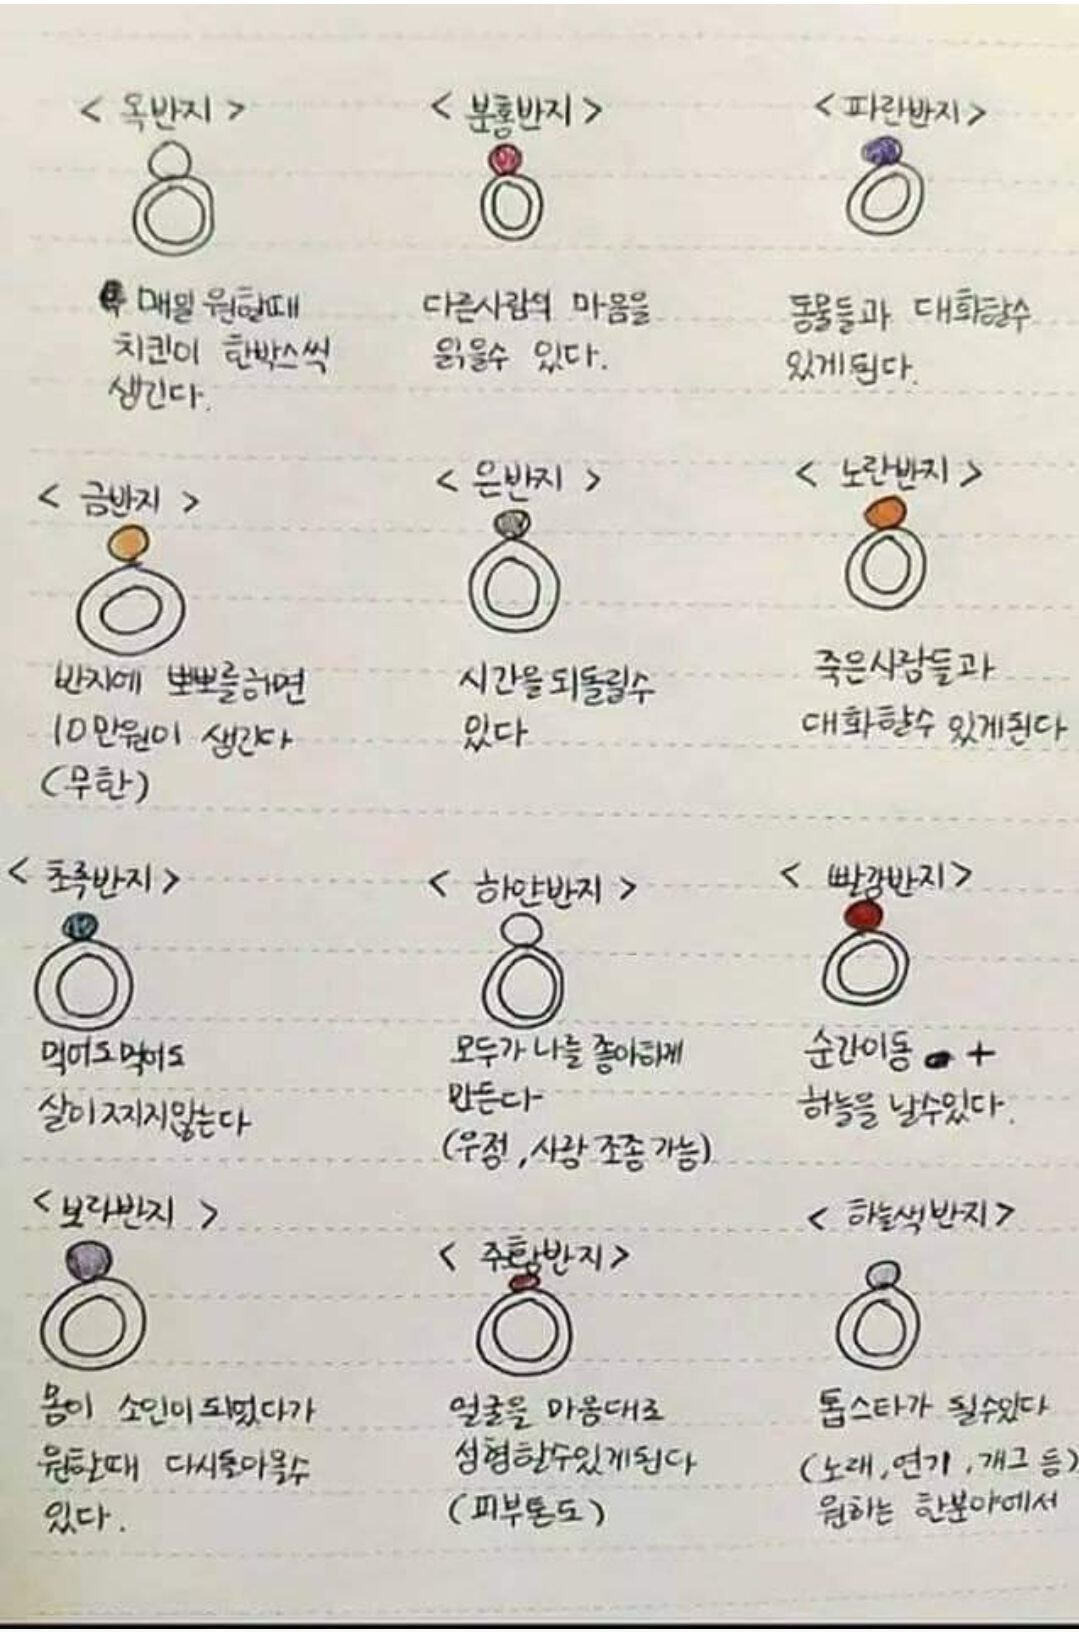 < 옥반지 >
매일 원할때
치킨이 한박스씩
생긴다.
< 분홍반지 >
다른사람의 마음을
읽을수 있다.
< 파란반지 >
동물들과 대화할수
있게된다.
< 금반지 >
반지에 뽀뽀를하면
10만원이 생긴다
(무한)
< 은반지 >
시간을 되돌릴수
있다
< 노란반지 >
죽은사람들과
대화할수 있게된다
< 초록반지 >
먹어도먹어도
살이 찌지않는다
< 하얀반지 >
모두가 나를 좋아하게
만든다
(우정, 사랑 조종 가능)
< 빨강반지 >
순간이동 +
하늘을 날수있다.
< 보라반지 >
몸이 소인이 되었다가
원할때 다시돌아올수
있다.
< 주황반지 >
얼굴을 마음대로
성형할수있게된다
(피부톤도)
< 하늘색반지 >
톱스타가 될수있다
(노래, 연기, 개그 등)
원하는 한분야에서